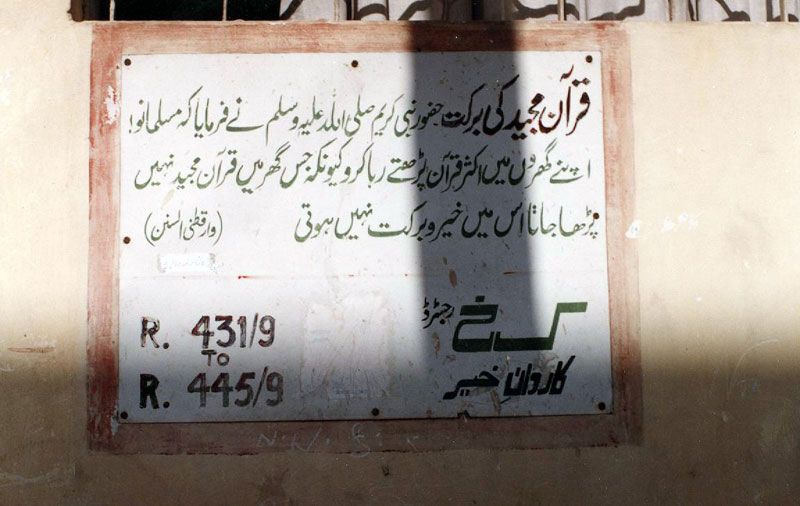 قرآن مجید کی برکت حضور نبی کریم صلی اللہ علیہ وسلم نے فرمایا کہ مسلمانو!
اپنے گھروں میں اکثر قرآن پڑھتے رہا کرو کیونکہ جس گھر میں قرآن مجید نہیں
پڑھا جاتا اس میں خیر و برکت نہیں ہوتی (دارقطنی السنن)
ک خ رجسٹرڈ
کاروانِ خیر
R. 431/9
TO
R. 445/9